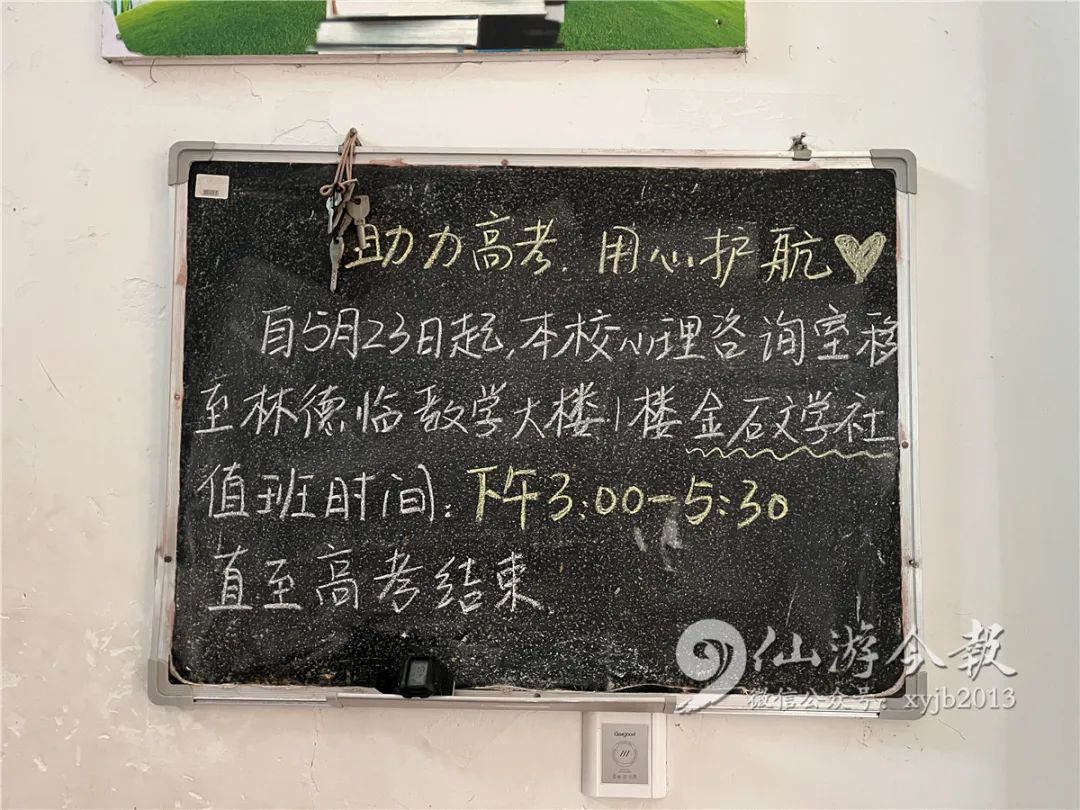 助力高考.用心护航
自5月23日起,本校心理咨询室移
至林德临教学大楼1楼金石文学社
值班时间:下午3:00-5:30
直至高考结束
仙游今报
微信公众号:xyjb2013